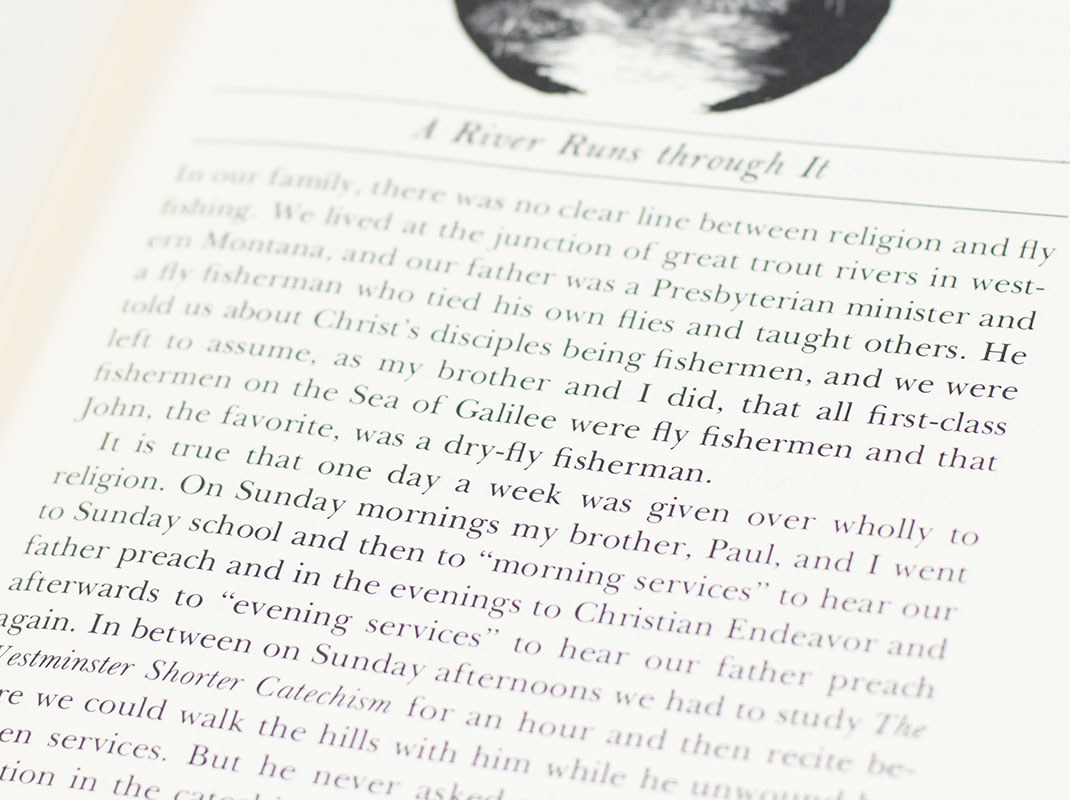 A River Runs through It
In our family, there was no clear line between religion and fly
fishing. We lived at the junction of great trout rivers in west-
ern Montana, and our father was a Presbyterian minister and
a fly fisherman who tied his own flies and taught others. He
told us about Christ's disciples being fishermen, and we were
left to assume, as my brother and I did, that all first-class
fishermen on the Sea of Galilee were fly fishermen and that
John, the favorite, was a dry-fly fisherman.
It is true that one day a week was given over wholly to
religion. On Sunday mornings my brother, Paul, and I went
to Sunday school and then to “morning services” to hear our
father preach and in the evenings to Christian Endeavor and
afterwards to “evening services” to hear our father preach
again. In between on Sunday afternoons we had to study The
Westminster Shorter Catechism for an hour and then recite be-
re we could walk the hills with him while he unwound
en services. But he never asked
tion in the